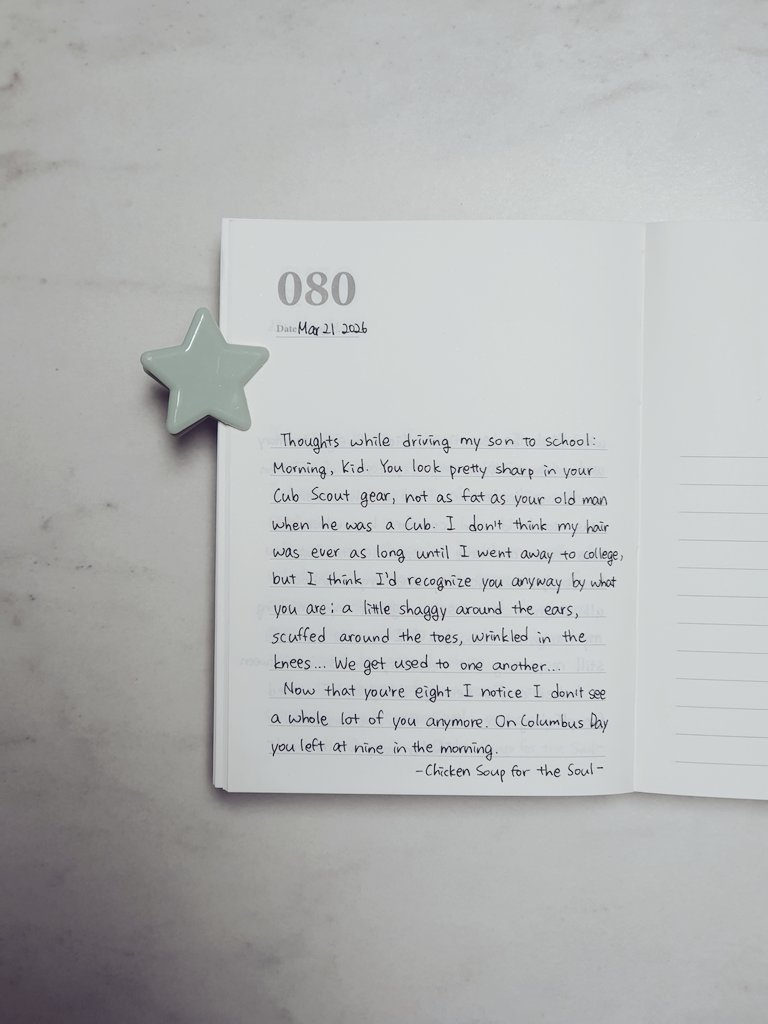 080
Date Mar 21 2026
Thoughts while driving my son to school:
Morning, Kid. You look pretty sharp in your
Cub Scout gear, not as fat as your old man
when he was a Cub. I don't think my hair
was ever as long until I went away to college,
but I think I'd recognize you anyway by what
you are: a little shaggy around the ears,
scuffed around the toes, wrinkled in the
knees... We get used to one another...
Now that you're eight I notice I don't see
a whole lot of you anymore. On Columbus Day
you left at nine in the morning.
-Chicken Soup for the Soul-